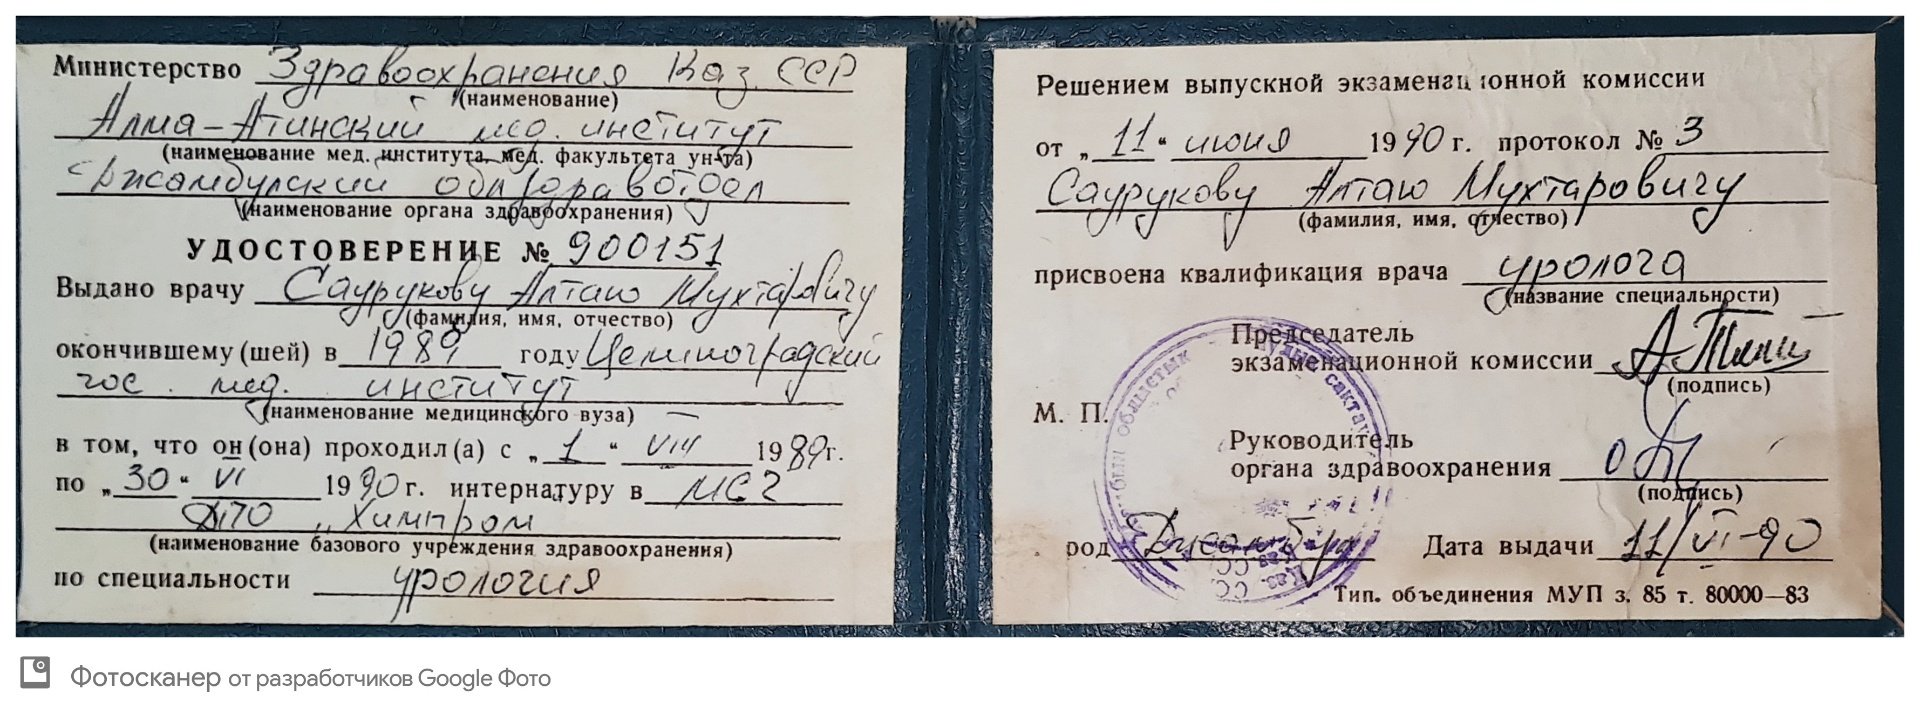 Министерство Здравоохранения Каз. ССР
(наименование)
Алма-Атинский мед. институт
(наименование мед. института, мед. факультета ун-та)
Джамбулский облздравотдел
(наименование органа здравоохранения)
УДОСТОВЕРЕНИЕ № 900151
Выдано врачу Саурукову Алтаю Мухтаровичу
(фамилия, имя, отчество)
окончившему (шей) в 1989 году Целиноградский
гос. мед. институт
(наименование медицинского вуза)
в том, что он (она) проходил (а) с „1“ VIII 1989г.
по „30“ VI 1990 г. интернатуру в МСЧ
ДПО „Химпром
(наименование базового учреждения здравоохранения)
по специальности урология
Решением выпускной экзаменационной комиссии
от „11“ июня 1990 г. протокол № 3
Саурукову Алтаю Мухтаровичу
(фамилия, имя, отчество)
присвоена квалификация врача уролога
(название специальности)
Председатель
экзаменационной комиссии
(подпись)
М. П.
Руководитель
органа здравоохранения
(подпись)
род Джамбул Дата выдачи 11/VI-90
облыстық сақтау
Каз. ССР
Тип. объединения МУП з. 85 т. 80000—83
Фотосканер от разработчиков Google Фото